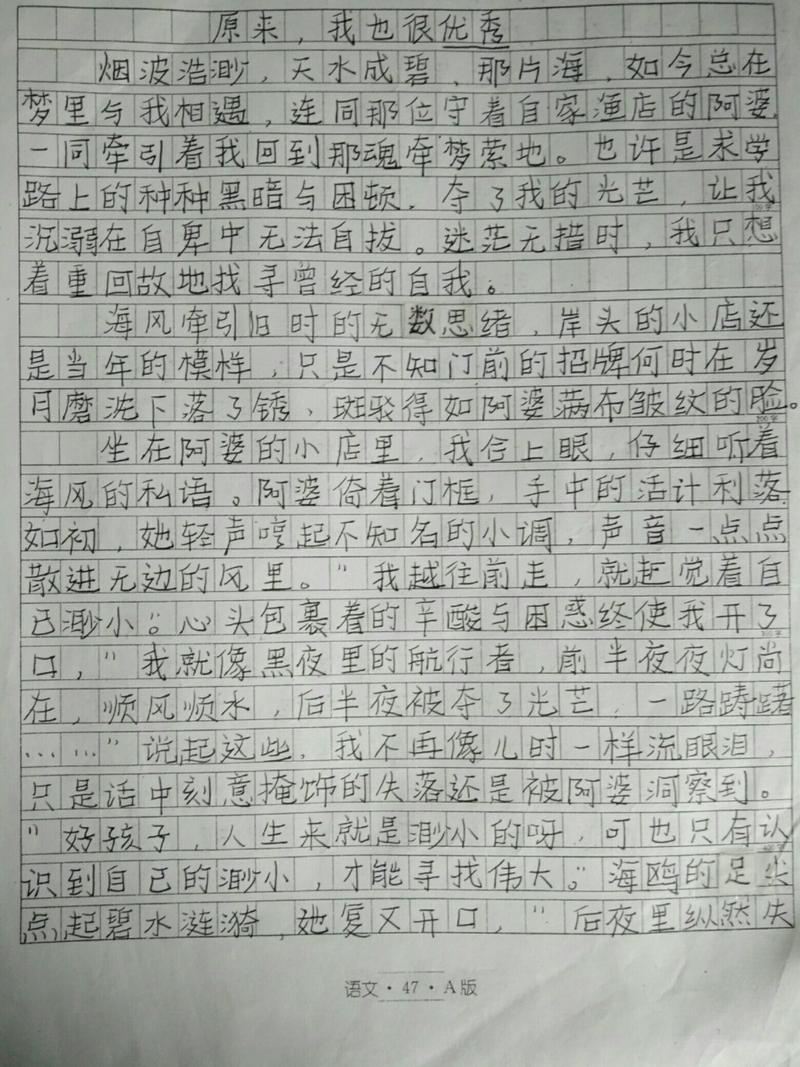 原来，我也很优秀
烟波浩渺，天水成碧，那片海，如今总在
梦里与我相遇，连同那位守着自家渔店的阿婆，
一同牵引着我回到那魂牵梦萦地。也许是求学
路上的种种黑暗与困顿，夺了我的光芒，让我
沉溺在自卑中无法自拔。迷茫无措时，我只想
着重回故地找寻曾经的自我。
海风牵引旧时的无数思绪，岸头的小店还
是当年的模样，只是不知门前的招牌何时在岁
月磨洗下落了锈，斑驳得如阿婆满布皱纹的脸。
坐在阿婆的小店里，我合上眼，仔细听着
海风的私语。阿婆倚着门框，手中的活计利落
如初，她轻声哼起不知名的小调，声音一点点
散进无边的风里。"我越往前走，就越觉着自
己渺小。"心头包裹着的辛酸与困惑终使我开了
口，"我就像黑夜里的航行者，前半夜夜灯尚
在，顺风顺水，后半夜被夺了光芒，一路踌躇
……"说起这些，我不再像儿时一样流眼泪，
只是话中刻意掩饰的失落还是被阿婆洞察到。
"好孩子，人生来就是渺小的呀，可也只有认
识到自己的渺小，才能寻找伟大。"海鸥的足尖
点起碧水涟漪，她复又开口，"后夜里纵然失
语文·47·A版